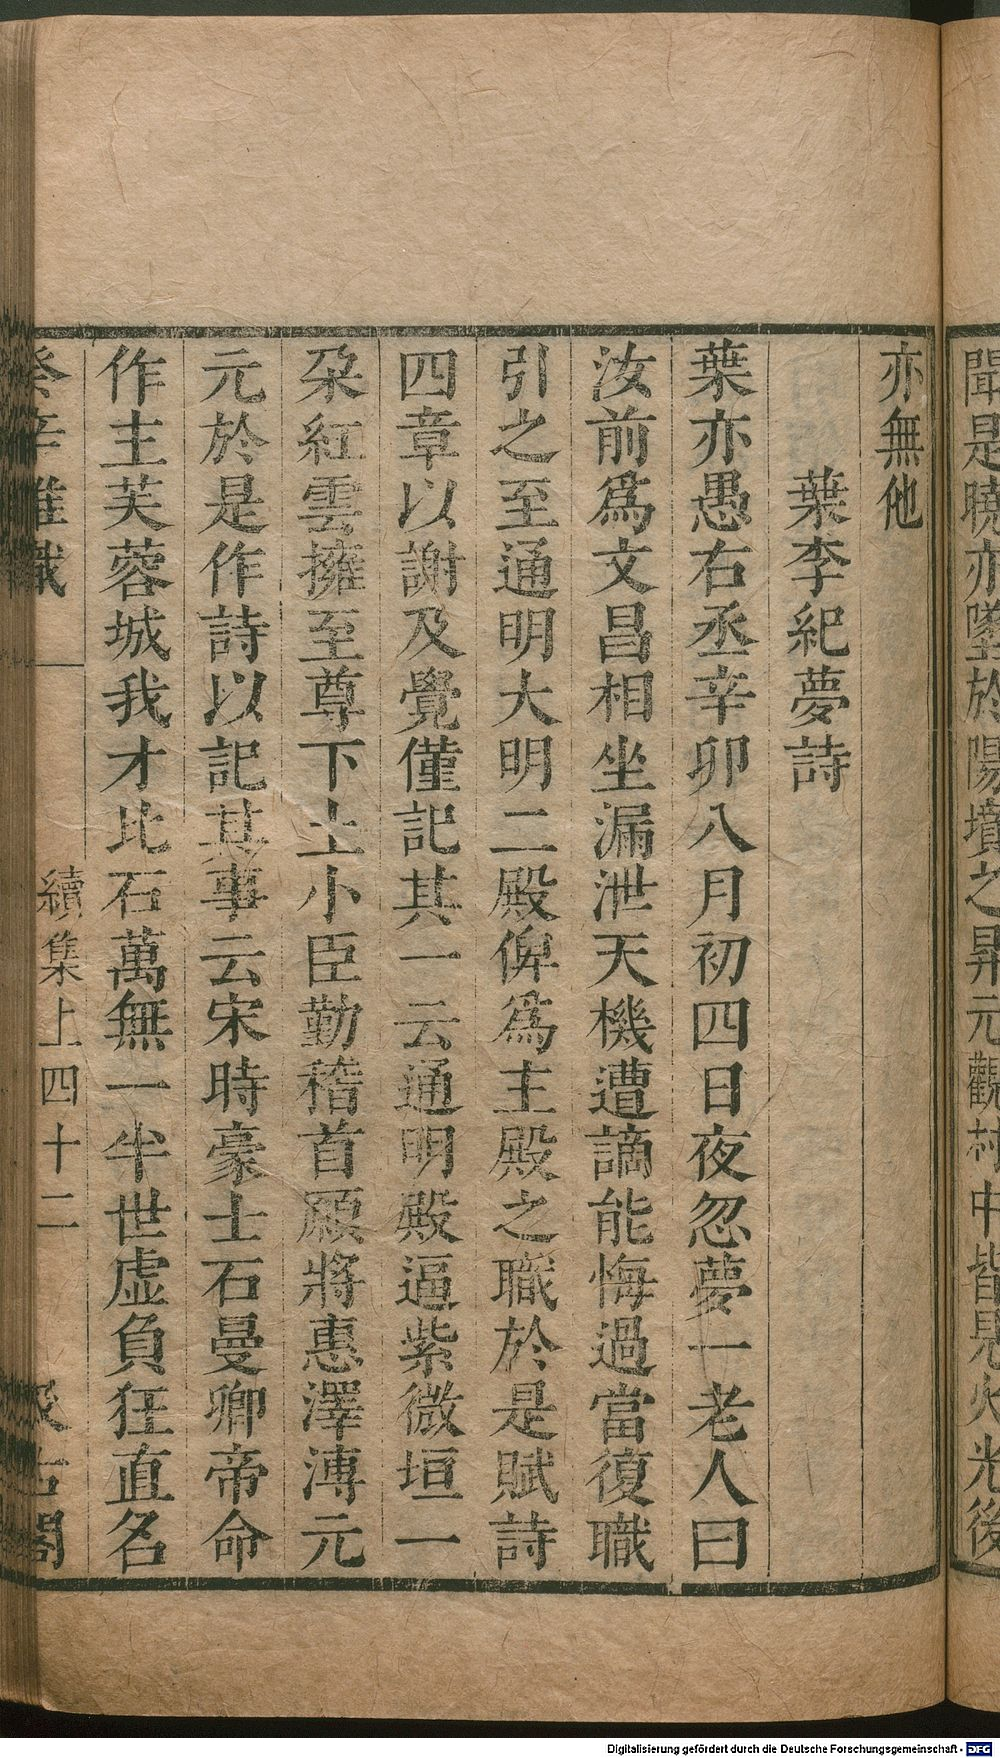 聞是曉亦墜於陽墳之昇元觀村中皆見火光後
亦無他
葉李紀夢詩
葉亦愚右丞辛卯八月初四日夜忽夢一老人曰
汝前爲文昌相坐漏泄天機遭謫能悔過當復職
引之至通明大明二殿俾爲主殿之職於是賦詩
四章以謝及覺僅記其一云通明殿逼紫微垣一
朶紅雲擁至尊下土小臣勤稽首願將惠澤溥元
元於是作詩以記其事云宋時豪士石曼卿帝命
作主芙蓉城我才比石萬無一半世虛負狂直名
癸辛雜識
續集上四十二
汲古閣
Digitalisierung gefördert durch die Deutsche Forschungsgemeinschaft - DFG